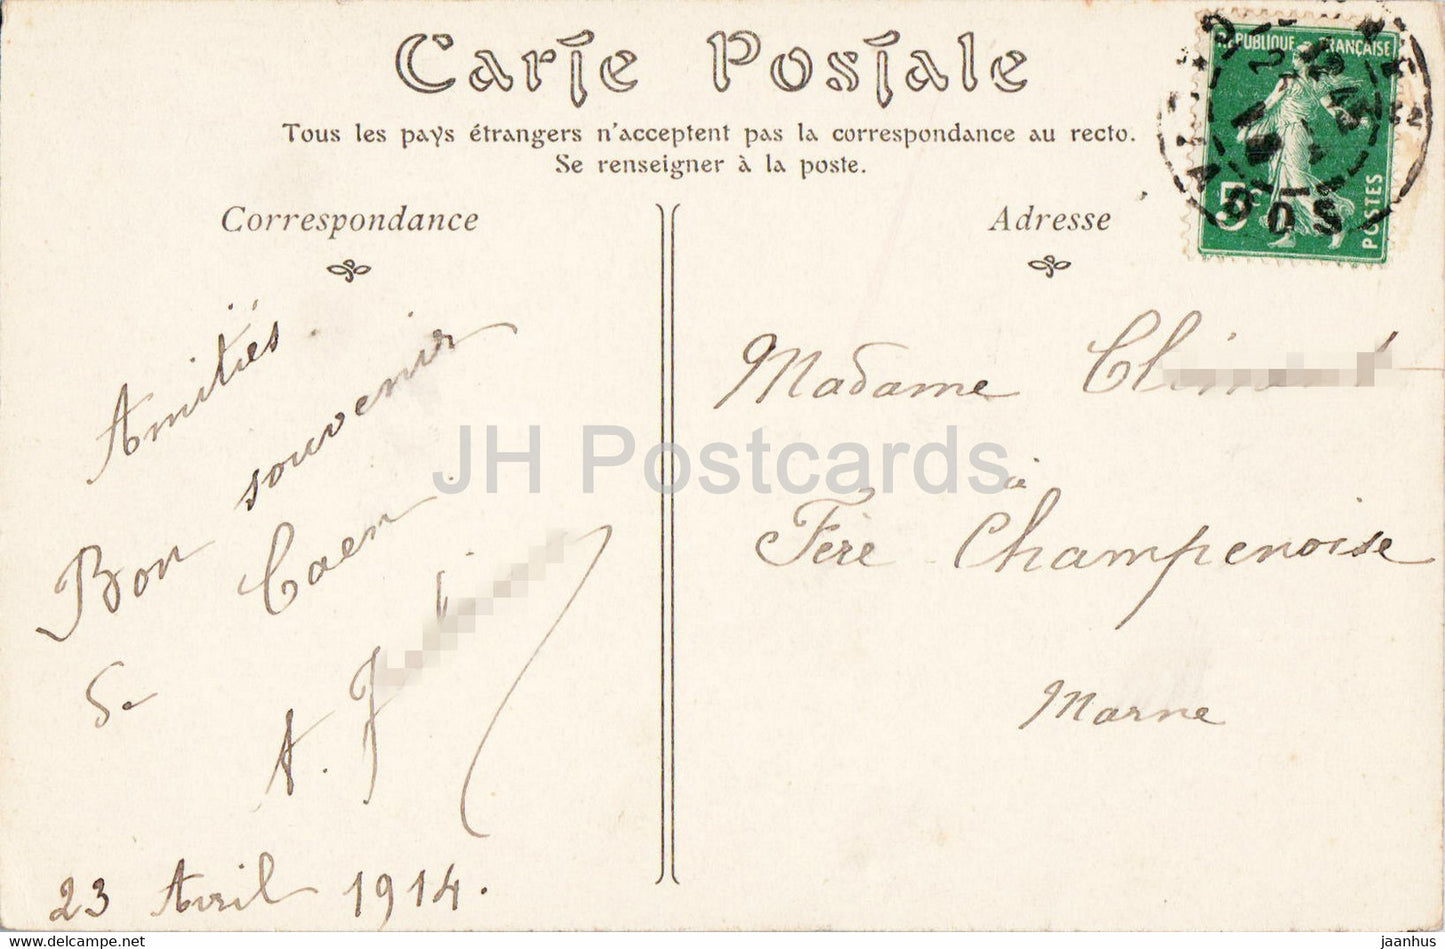 Carte Postale
Tous les pays étrangers n'acceptent pas la correspondance au recto.
Se renseigner à la poste.
Correspondance
Adresse
RÉPUBLIQUE FRANÇAISE
5c
POSTES
Amitiés.
Bon souvenir
de Caen
A.
23 Avril 1914.
Madame
à
Fère Champenoise
Marne
JH Postcards
www.delcampe.net
jaanhus